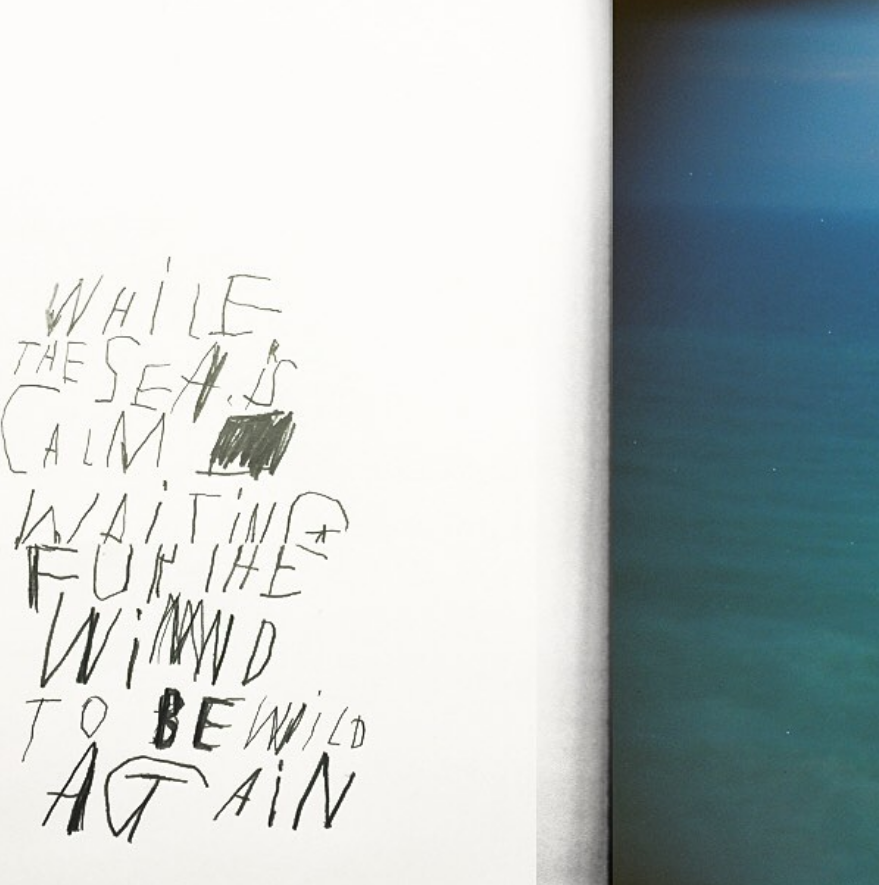 WHiLE
THE SEA.iS
CALM
WAiTiNG
FOR THE
WiND
TO BE WiLD
AGAiN